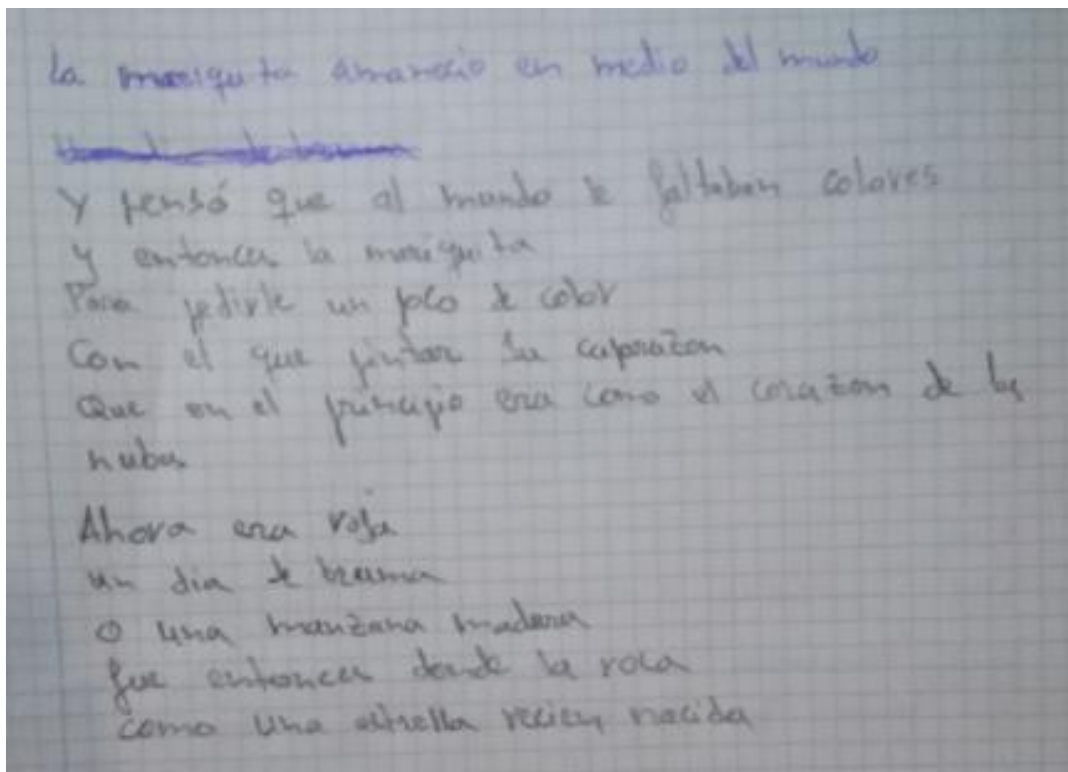 La mariquita amanecio en medio del mundo
Y pensó que al mundo le faltaban colores
y entonces la mariquita
Para pedirle un poco de color
Con el que pintar su caparazon
Que en el principio era como el corazon de las
nubes
Ahora era roja
un dia de bruma
o una manzana madura
fue entonces donde la rosa
como una estrella recien nacida